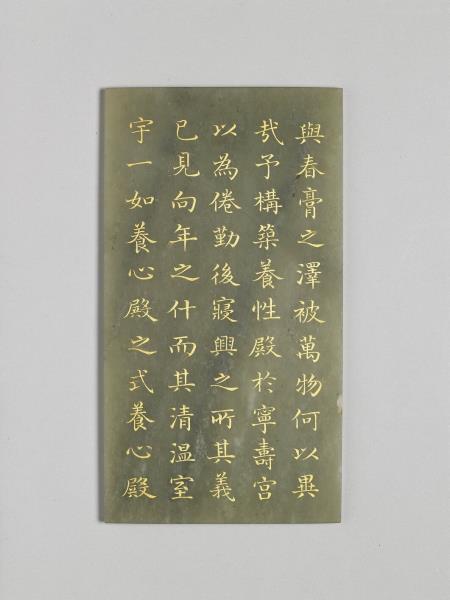 與春膏之澤被萬物何以異
哉予構築養性殿於寧壽宮
以為倦勤後寢興之所其義
已見向年之什而其清温室
宇一如養心殿之式養心殿